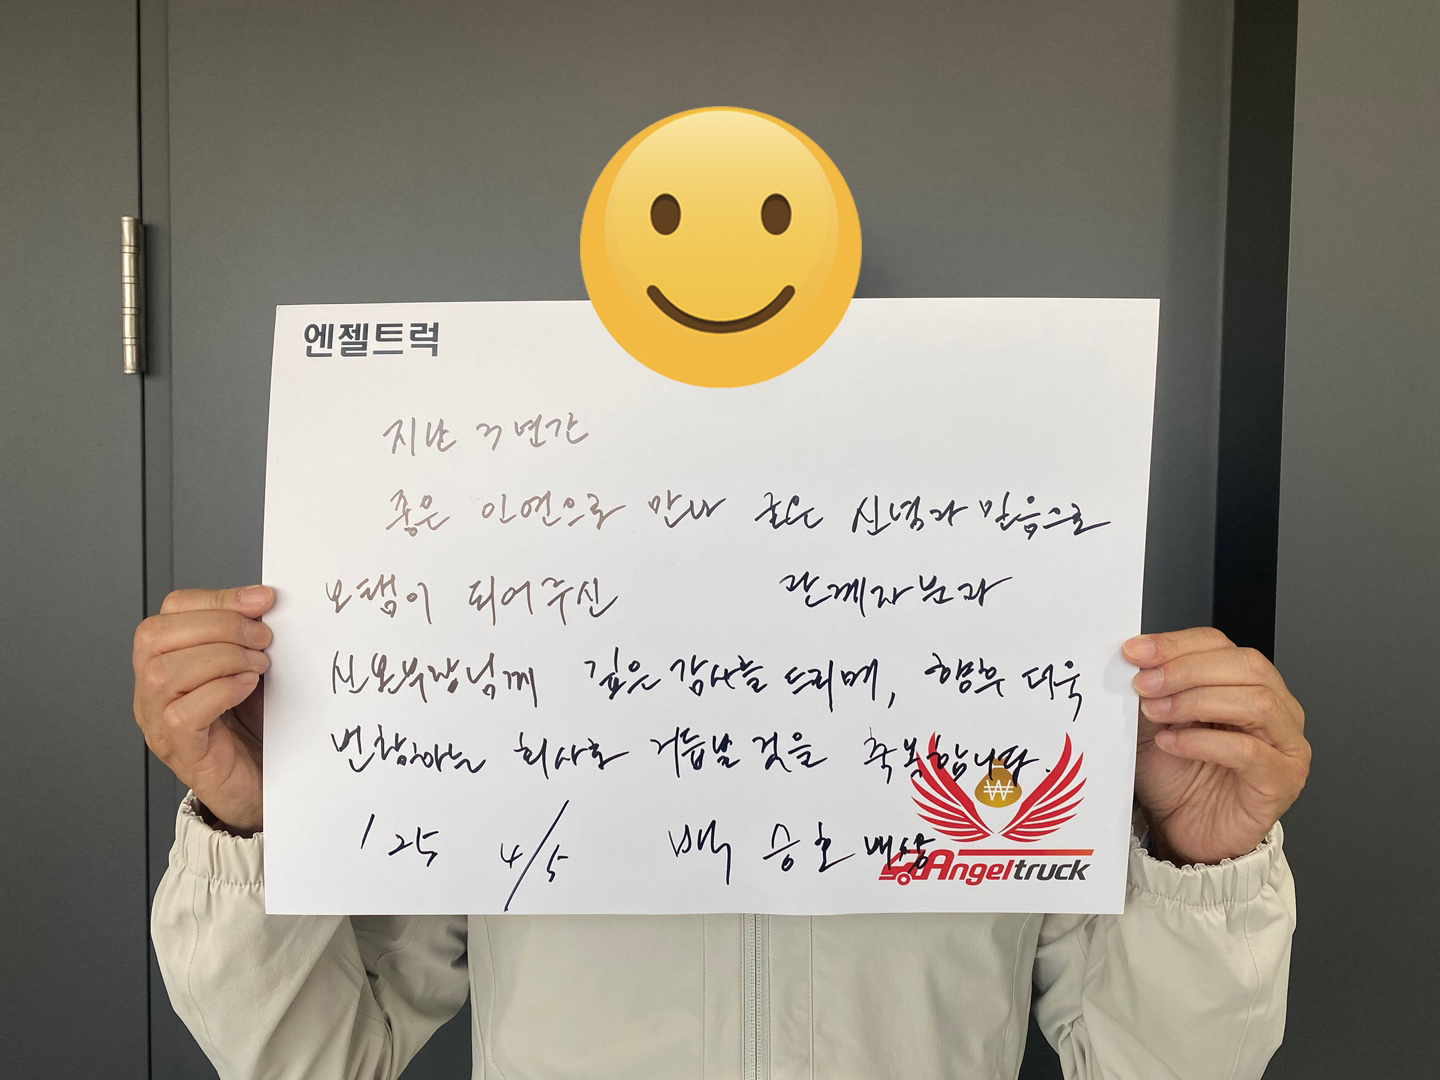 엔젤트럭
지난 3년간
좋은 인연으로 만나 굳은 신념과 믿음으로
보탬이 되어주신 관계자분과
신본부장님께 깊은 감사를 드리며, 향후 더욱
번창하는 회사로 거듭날 것을 축복합니다.
'25 4/5 백승호 배상
₩
Angeltruck